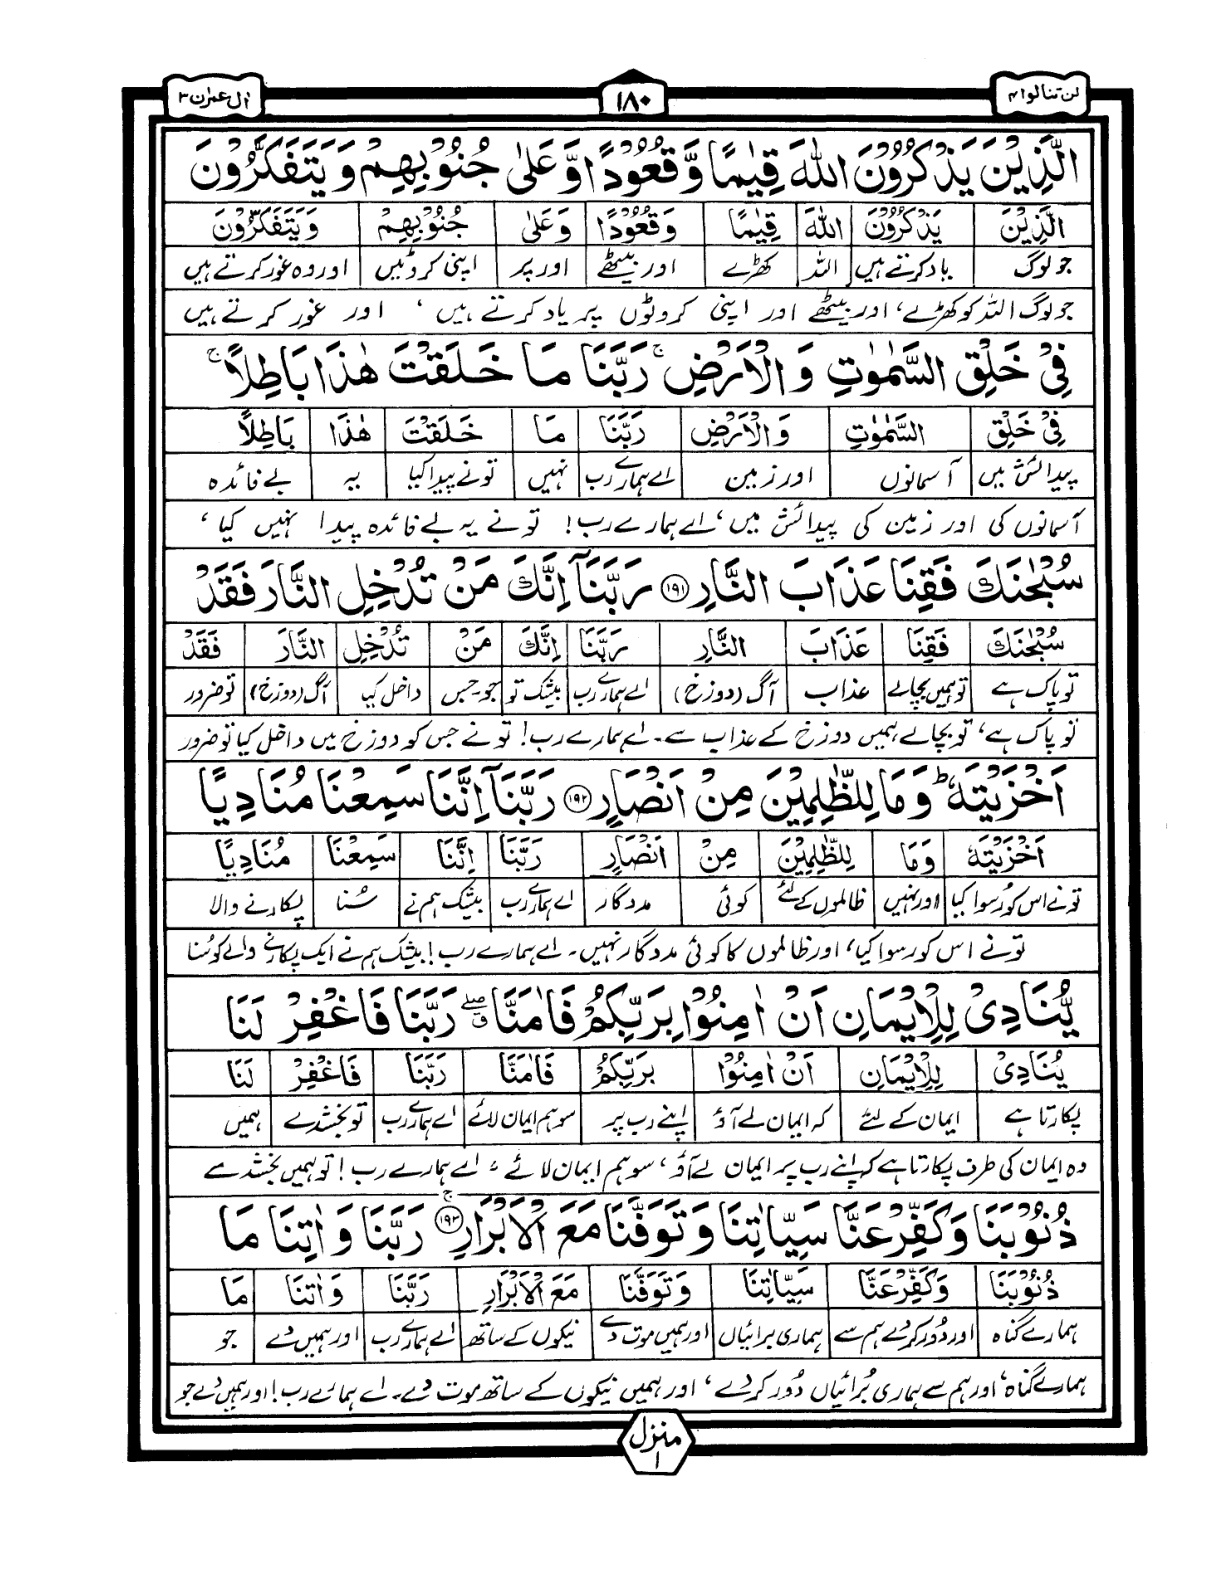 لن تنالوا ۴
۱۸۰
اٰل عمرٰن ۳
الَّذِیْنَ یَذْكُرُوْنَ اللّٰهَ قِیٰمًا وَّ قُعُوْدًا وَّ عَلٰی جُنُوْبِهِمْ وَ یَتَفَكَّرُوْنَ
الَّذِیْنَ یَذْكُرُوْنَ اللّٰهَ قِیٰمًا وَ قُعُوْدًا وَ عَلٰی جُنُوْبِهِمْ وَیَتَفَكَّرُوْنَ
جو لوگ یاد کرتے ہیں اللہ کھڑے اور بیٹھے اور پر اپنی کروٹیں اور وہ غور کرتے ہیں
جو لوگ اللہ کو کھڑے، اور بیٹھے اور اپنی کروٹوں پر یاد کرتے ہیں، اور غور کرتے ہیں
فِیْ خَلْقِ السَّمٰوٰتِ وَ الْاَرْضِ ۚ رَبَّنَا مَا خَلَقْتَ هٰذَا بَاطِلًا ۚ
فِیْ خَلْقِ السَّمٰوٰتِ وَ الْاَرْضِ رَبَّنَا مَا خَلَقْتَ هٰذَا بَاطِلًا
پیدائش میں آسمانوں اور زمین اے ہمارے رب نہیں تو نے پیدا کیا یہ بے فائدہ
آسمانوں کی اور زمین کی پیدائش میں، اے ہمارے رب! تو نے یہ بے فائدہ پیدا نہیں کیا،
سُبْحٰنَكَ فَقِنَا عَذَابَ النَّارِ ۱۹۱ رَبَّنَاۤ اِنَّكَ مَنْ تُدْخِلِ النَّارَ فَقَدْ
سُبْحٰنَكَ فَقِنَا عَذَابَ النَّارِ رَبَّنَا اِنَّكَ مَنْ تُدْخِلِ النَّارَ فَقَدْ
تو پاک ہے تو ہمیں بچالے عذاب آگ (دوزخ) اے ہمارے رب بیشک تو جو۔جس داخل کیا آگ (دوزخ) تو ضرور
تو پاک ہے، تو بچالے ہمیں دوزخ کے عذاب سے۔ اے ہمارے رب! تو نے جس کو دوزخ میں داخل کیا تو ضرور
اَخْزَیْتَهٗ ؕ وَ مَا لِلظّٰلِمِیْنَ مِنْ اَنْصَارٍ ۱۹۲ رَبَّنَاۤ اِنَّنَا سَمِعْنَا مُنَادِیًا
اَخْزَیْتَهٗ وَمَا لِلظّٰلِمِیْنَ مِنْ اَنْصَارٍ رَبَّنَا اِنَّنَا سَمِعْنَا مُنَادِیًا
تو نے اس کو رسوا کیا اور نہیں ظالموں کے لئے کوئی مددگار اے ہمارے رب بیشک ہم نے سُنا پکارنے والا
تو نے اس کو رسوا کیا، اور ظالموں کا کوئی مددگار نہیں۔ اے ہمارے رب! بیشک ہم نے ایک پکارنے والے کو سُنا
یُّنَادِیْ لِلْاِیْمَانِ اَنْ اٰمِنُوْا بِرَبِّكُمْ فَاٰمَنَّا ۖۗ رَبَّنَا فَاغْفِرْ لَنَا
یُنَادِیْ لِلْاِیْمَانِ اَنْ اٰمِنُوْا بِرَبِّكُمْ فَاٰمَنَّا رَبَّنَا فَاغْفِرْ لَنَا
پکارتا ہے ایمان کے لئے کہ ایمان لے آؤ اپنے رب پر سو ہم ایمان لائے اے ہمارے رب تو بخشدے ہمیں
وہ ایمان کی طرف پکارتا ہے کہ اپنے رب پر ایمان لے آؤ، سو ہم ایمان لائے، اے ہمارے رب! تو ہمیں بخشدے
ذُنُوْبَنَا وَ كَفِّرْ عَنَّا سَیِّاٰتِنَا وَ تَوَفَّنَا مَعَ الْاَبْرَارِ ۚ ۱۹۳ رَبَّنَا وَ اٰتِنَا مَا
ذُنُوْبَنَا وَ كَفِّرْ عَنَّا سَیِّاٰتِنَا وَ تَوَفَّنَا مَعَ الْاَبْرَارِ رَبَّنَا وَ اٰتِنَا مَا
ہمارے گناہ اور دُور کردے ہم سے ہماری برائیاں اور ہمیں موت دے نیکوں کے ساتھ اے ہمارے رب اور ہمیں دے جو
ہمارے گناہ، اور ہم سے ہماری بُرائیاں دُور کردے، اور ہمیں نیکوں کے ساتھ موت دے۔ اے ہمارے رب! اور ہمیں دے جو
منزل
۱